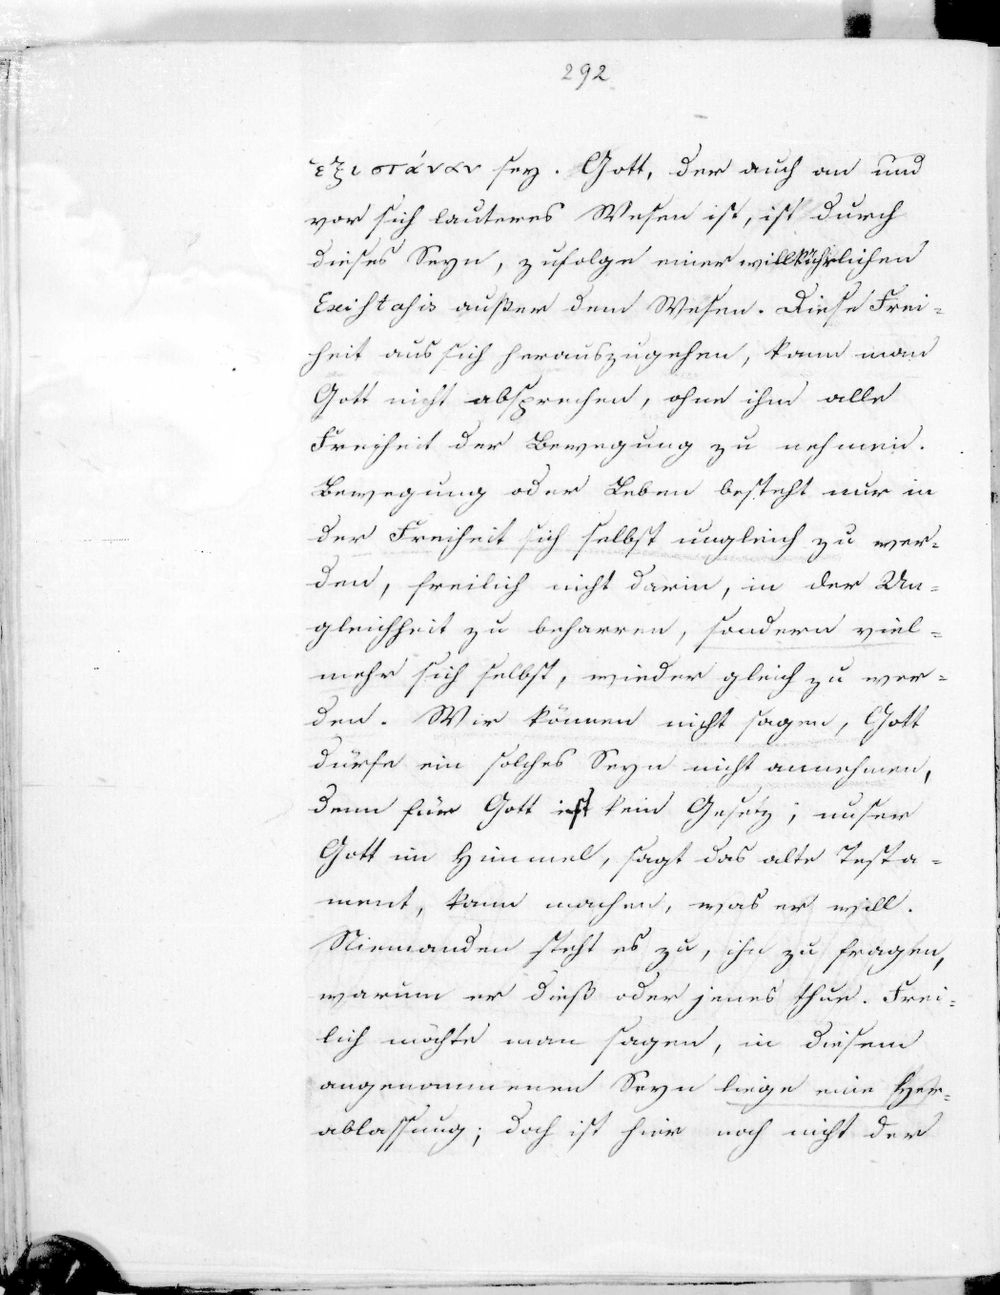 292
ἐξιστάναν sey. Gott, der auch an und
vor sich lauteres Wesen ist, ist durch
dieses Seyn, zufolge einer willkührlichen
Existasis außer dem Wesen. Diese Frei-
heit aus sich herauszugehen, kann man
Gott nicht absprechen, ohne ihm alle
Freiheit der Bewegung zu nehmen.
Bewegung oder Leben besteht nur in
der Freiheit sich selbst ungleich zu wer-
den, freilich nicht darin, in der Un-
gleichheit zu beharren, sondern viel-
mehr sich selbst, wieder gleich zu wer-
den. Wir können nicht sagen, Gott
dürfe ein solches Seyn nicht annehmen,
denn für Gott ist kein Gesetz; unser
Gott im Himmel, sagt das alte Testa-
ment, kann machen, was er will.
Niemanden steht es zu, ihn zu fragen,
warum er dieß oder jenes thue. Frei-
lich möchte man sagen, in diesem
angenommenen Seyn liege eine Her-
ablassung; doch ist hier noch nicht der